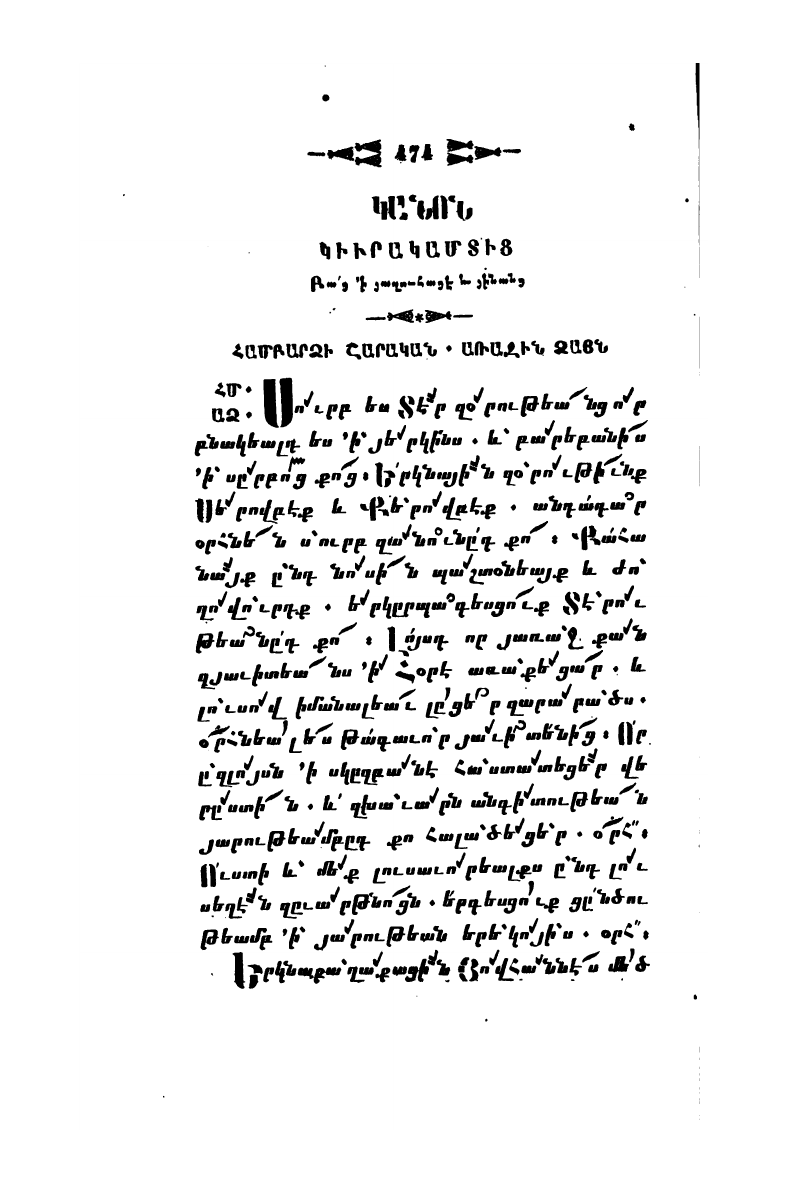 474
ԿԱՆՈՆ
ԿԻՒՐԱԿԱՄՏԻՑ
Բա՛ց ՚ի յաղուհացէ և յինանց
ՀԱՄԲԱՐՁԻ ՇԱՐԱԿԱՆ • ԱՌԱՋԻՆ ՁԱՅՆ
ՀՄ •
ԱՁ • Սուրբ ես Տէր զօրութեանց որ
բնակեալդ ես ՚ի յերկինս • և բարեբանիս
՚ի սըրբոց քոց։ Երկնային զօրութիւնք
Սերովբէք և Քերովբէք • անդադար
օրհնեն սուրբ զանունըդ քո ։ Քահա
նայք ընդ նոսին պաշտօնեայք և ժո
ղովուրդք • երկըրպագեսցուք Տէրու
թեանըդ քո ։ Լոյսդ որ յառաջ քան
զյաւիտեանս ՚ի Հօրէ առաքեցար • և
լուսով իմանալեաւ լըցեր զարարածս •
օրհնեալես թագաւոր յաւիտենից ։ Որ
ըզլոյսն ՚ի սկըզբանէ հաստատեցեր վե
րըստին • և զխաւարն անգիտութեան
յարութեամբըդ քո հալածեցեր • օրհ՞ ։
Ուստի և մեք լուսաւորեալքս ընդ լու
սեղէն զըւարթնոցն • երգեսցուք ցընծու
թեամբ ՚ի յարութեան երեկոյիս • օրհ՞ ։
Երկնաքաղաքացին Յովհաննէս մեծ